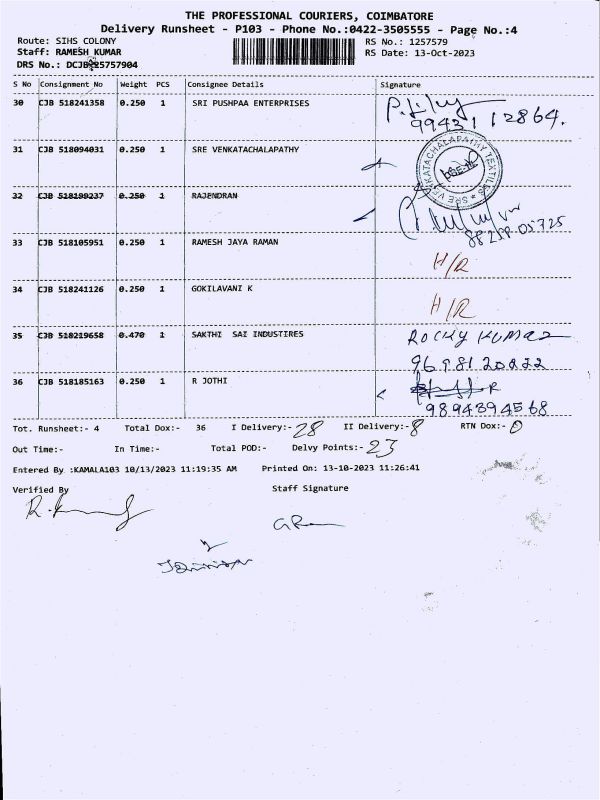 THE PROFESSIONAL COURIERS, COIMBATORE
Delivery Runsheet - P103 - Phone No.:0422-3505555 - Page No.:4
Route: SIHS COLONY
RS No.: 1257579
Staff: RAMESH KUMAR
RS Date: 13-Oct-2023
DRS No.:
S No Consignment No Weight PCS Consignee Details Signature
30 CJB 518241358 0.250 1 SRI PUSHPAA ENTERPRISES
99431 12864.
31 CJB 518094031 0.250 1 SRE VENKATACHALAPATHY
SRE VENKATACHALAPATHY TEXTILES
32 CJB 518199237 0.250 1 RAJENDRAN
33 CJB 518105951 0.250 1 RAMESH JAYA RAMAN H/R
34 CJB 518241126 0.250 1 GOKILAVANI K H/R
35 CJB 518219658 0.470 1 SAKTHI SAI INDUSTIRES ROCKY KUMAR
36 CJB 518185163 0.250 1 R JOTHI
9894394568
Tot. Runsheet:- 4 Total Dox:- 36 I Delivery:- 28 II Delivery:- 8 RTN Dox:- 0
Out Time:- In Time:- Total POD:- Delvy Points:- 23
Entered By :KAMALA103 10/13/2023 11:19:35 AM Printed On: 13-10-2023 11:26:41
Verified By Staff Signature